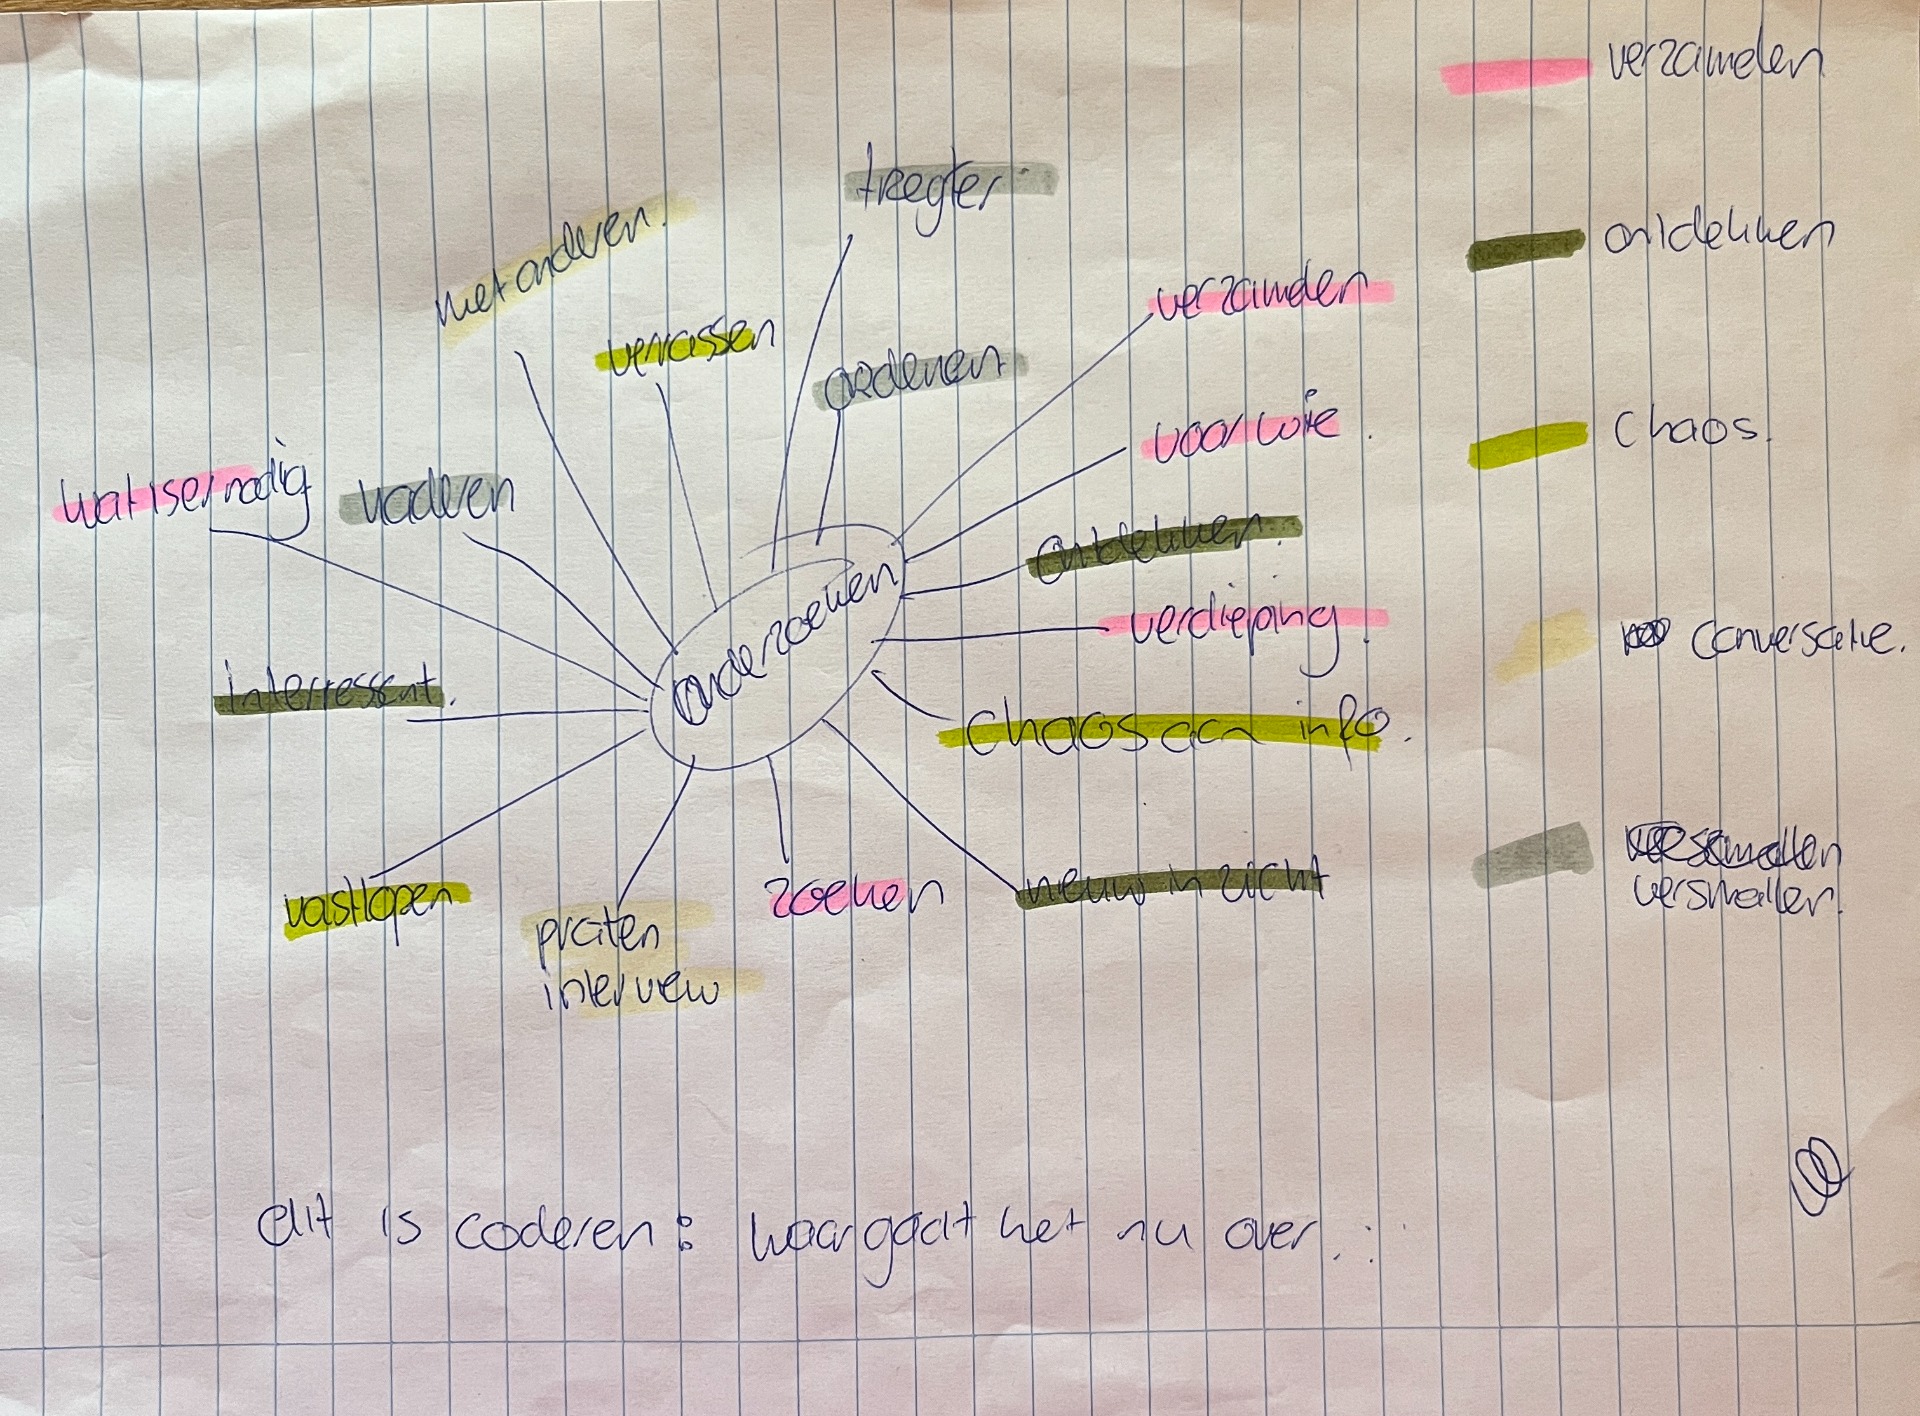 verzamelen
ontdekken
chaos.
conversatie.
versmallen.
tregter
met anderen.
verrassen
ordenen
verzamelen
voor wie.
wat is er nodig
kaderen
ontdekken.
verdieping.
onderzoeken
interressant.
chaos aan info.
vastlopen
praten
interview
zoeken
nieuw in zicht
dit is coderen: waar gaat het nu over...